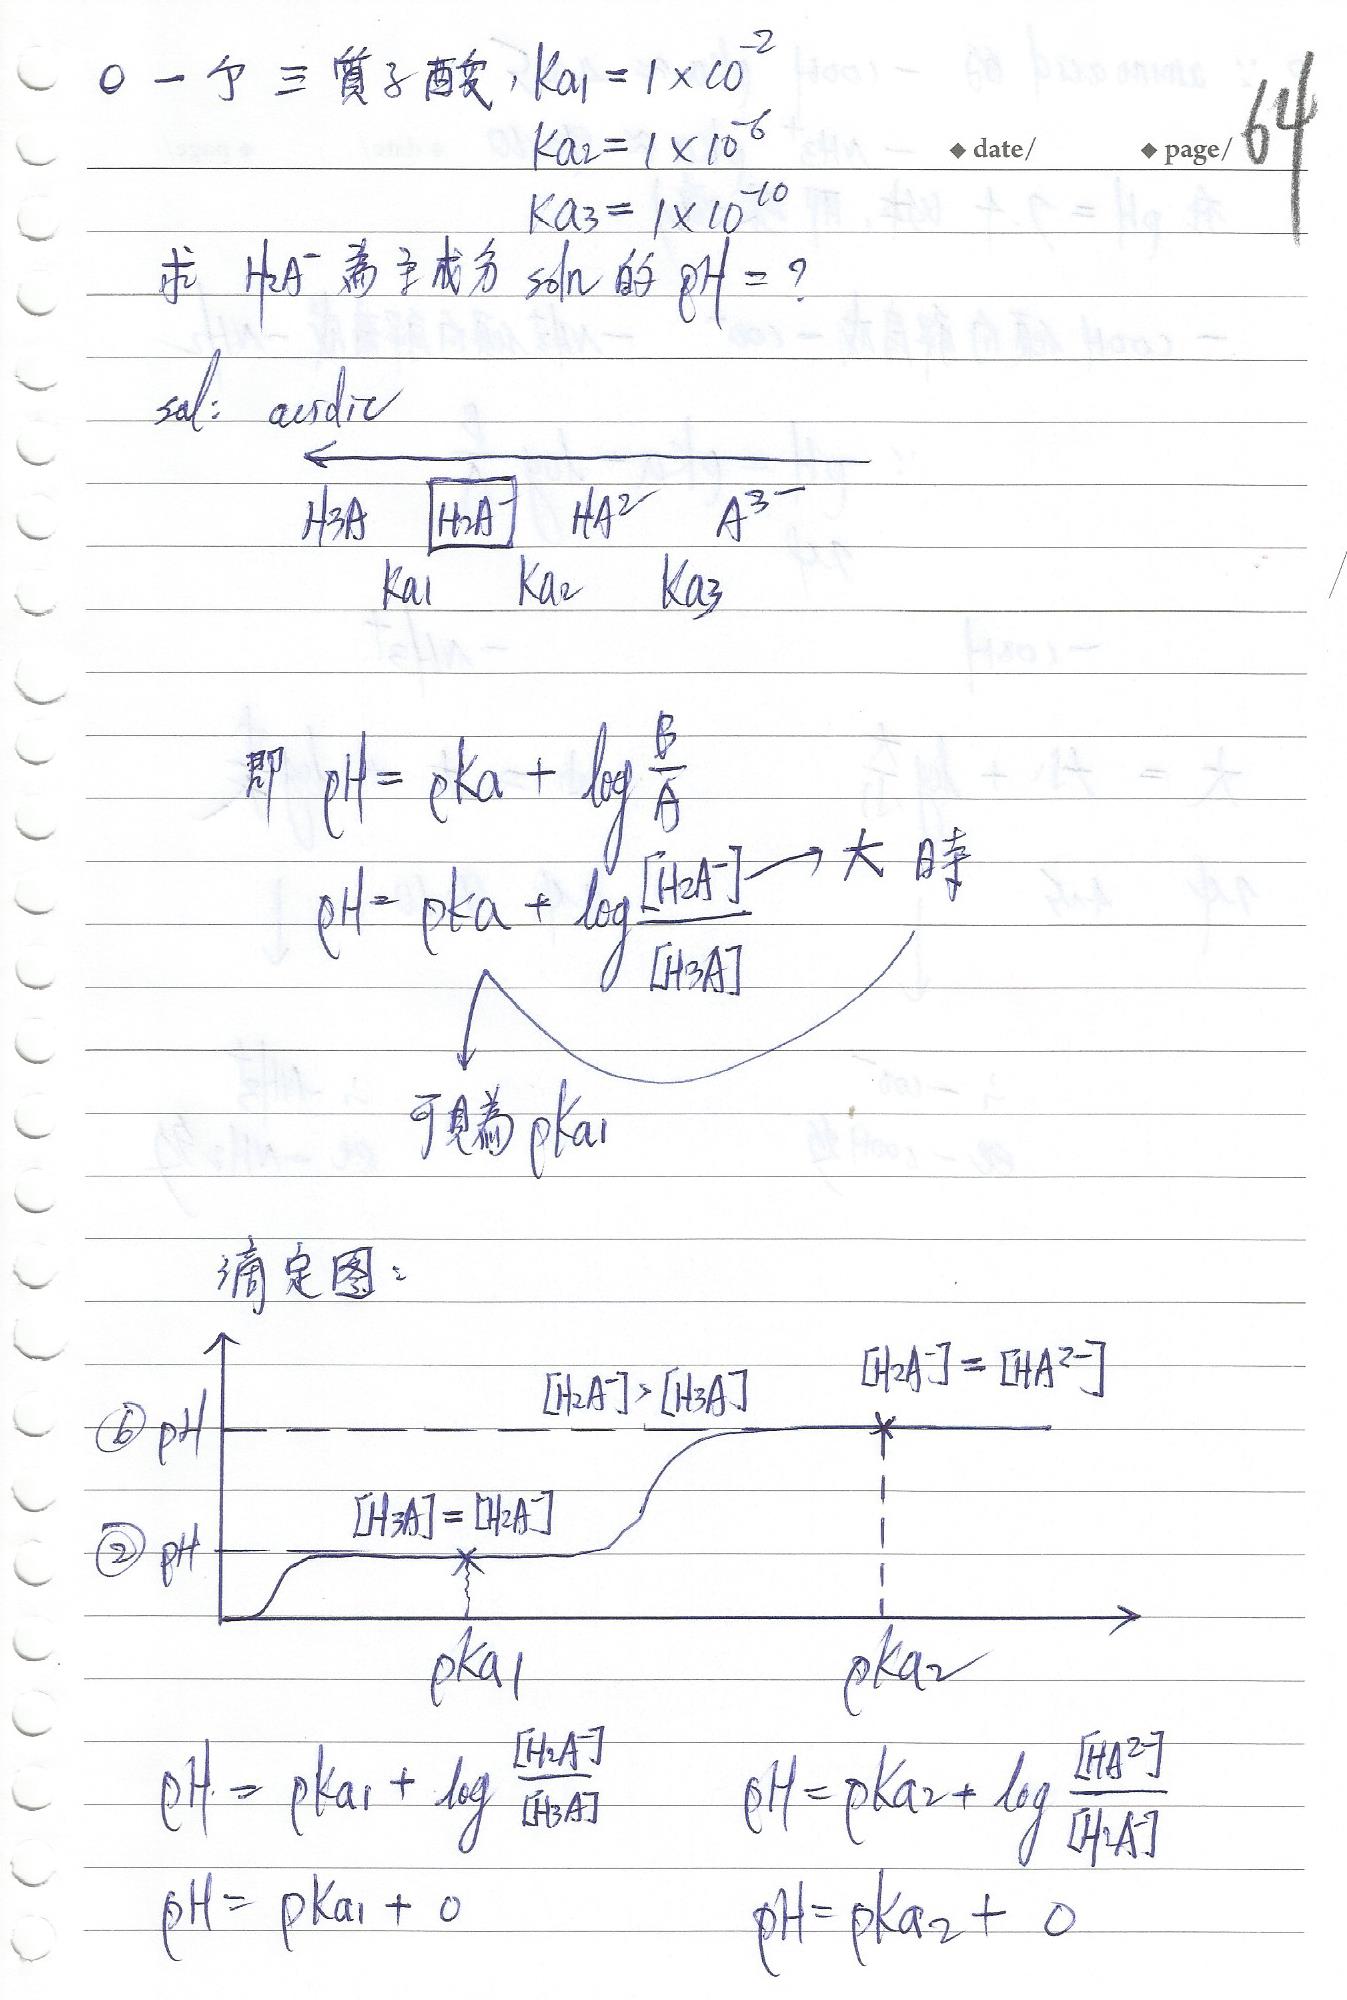 ○ 一个三質子酸,Ka1 = 1×10⁻²
Ka2 = 1×10⁻⁶
◆ date/ ◆ page/ 64
Ka3 = 1×10⁻¹⁰
求 H2A⁻ 為主成分 soln 的 pH = ?
sol: acidic
←
H3A [H2A⁻] HA²⁻ A³⁻
Ka1 Ka2 Ka3
即 pH = pKa + log B/A
pH = pKa + log [H2A⁻]/[H3A] → 大 時
可見為 pKa1
滴定图:
[H2A⁻] = [HA²⁻]
[H2A⁻] > [H3A]
⑥ pH
[H3A] = [H2A⁻]
② pH
pKa1 pKa2
pH = pKa1 + log [H2A⁻]/[H3A] pH = pKa2 + log [HA²⁻]/[H2A⁻]
pH = pKa1 + 0 pH = pKa2 + 0